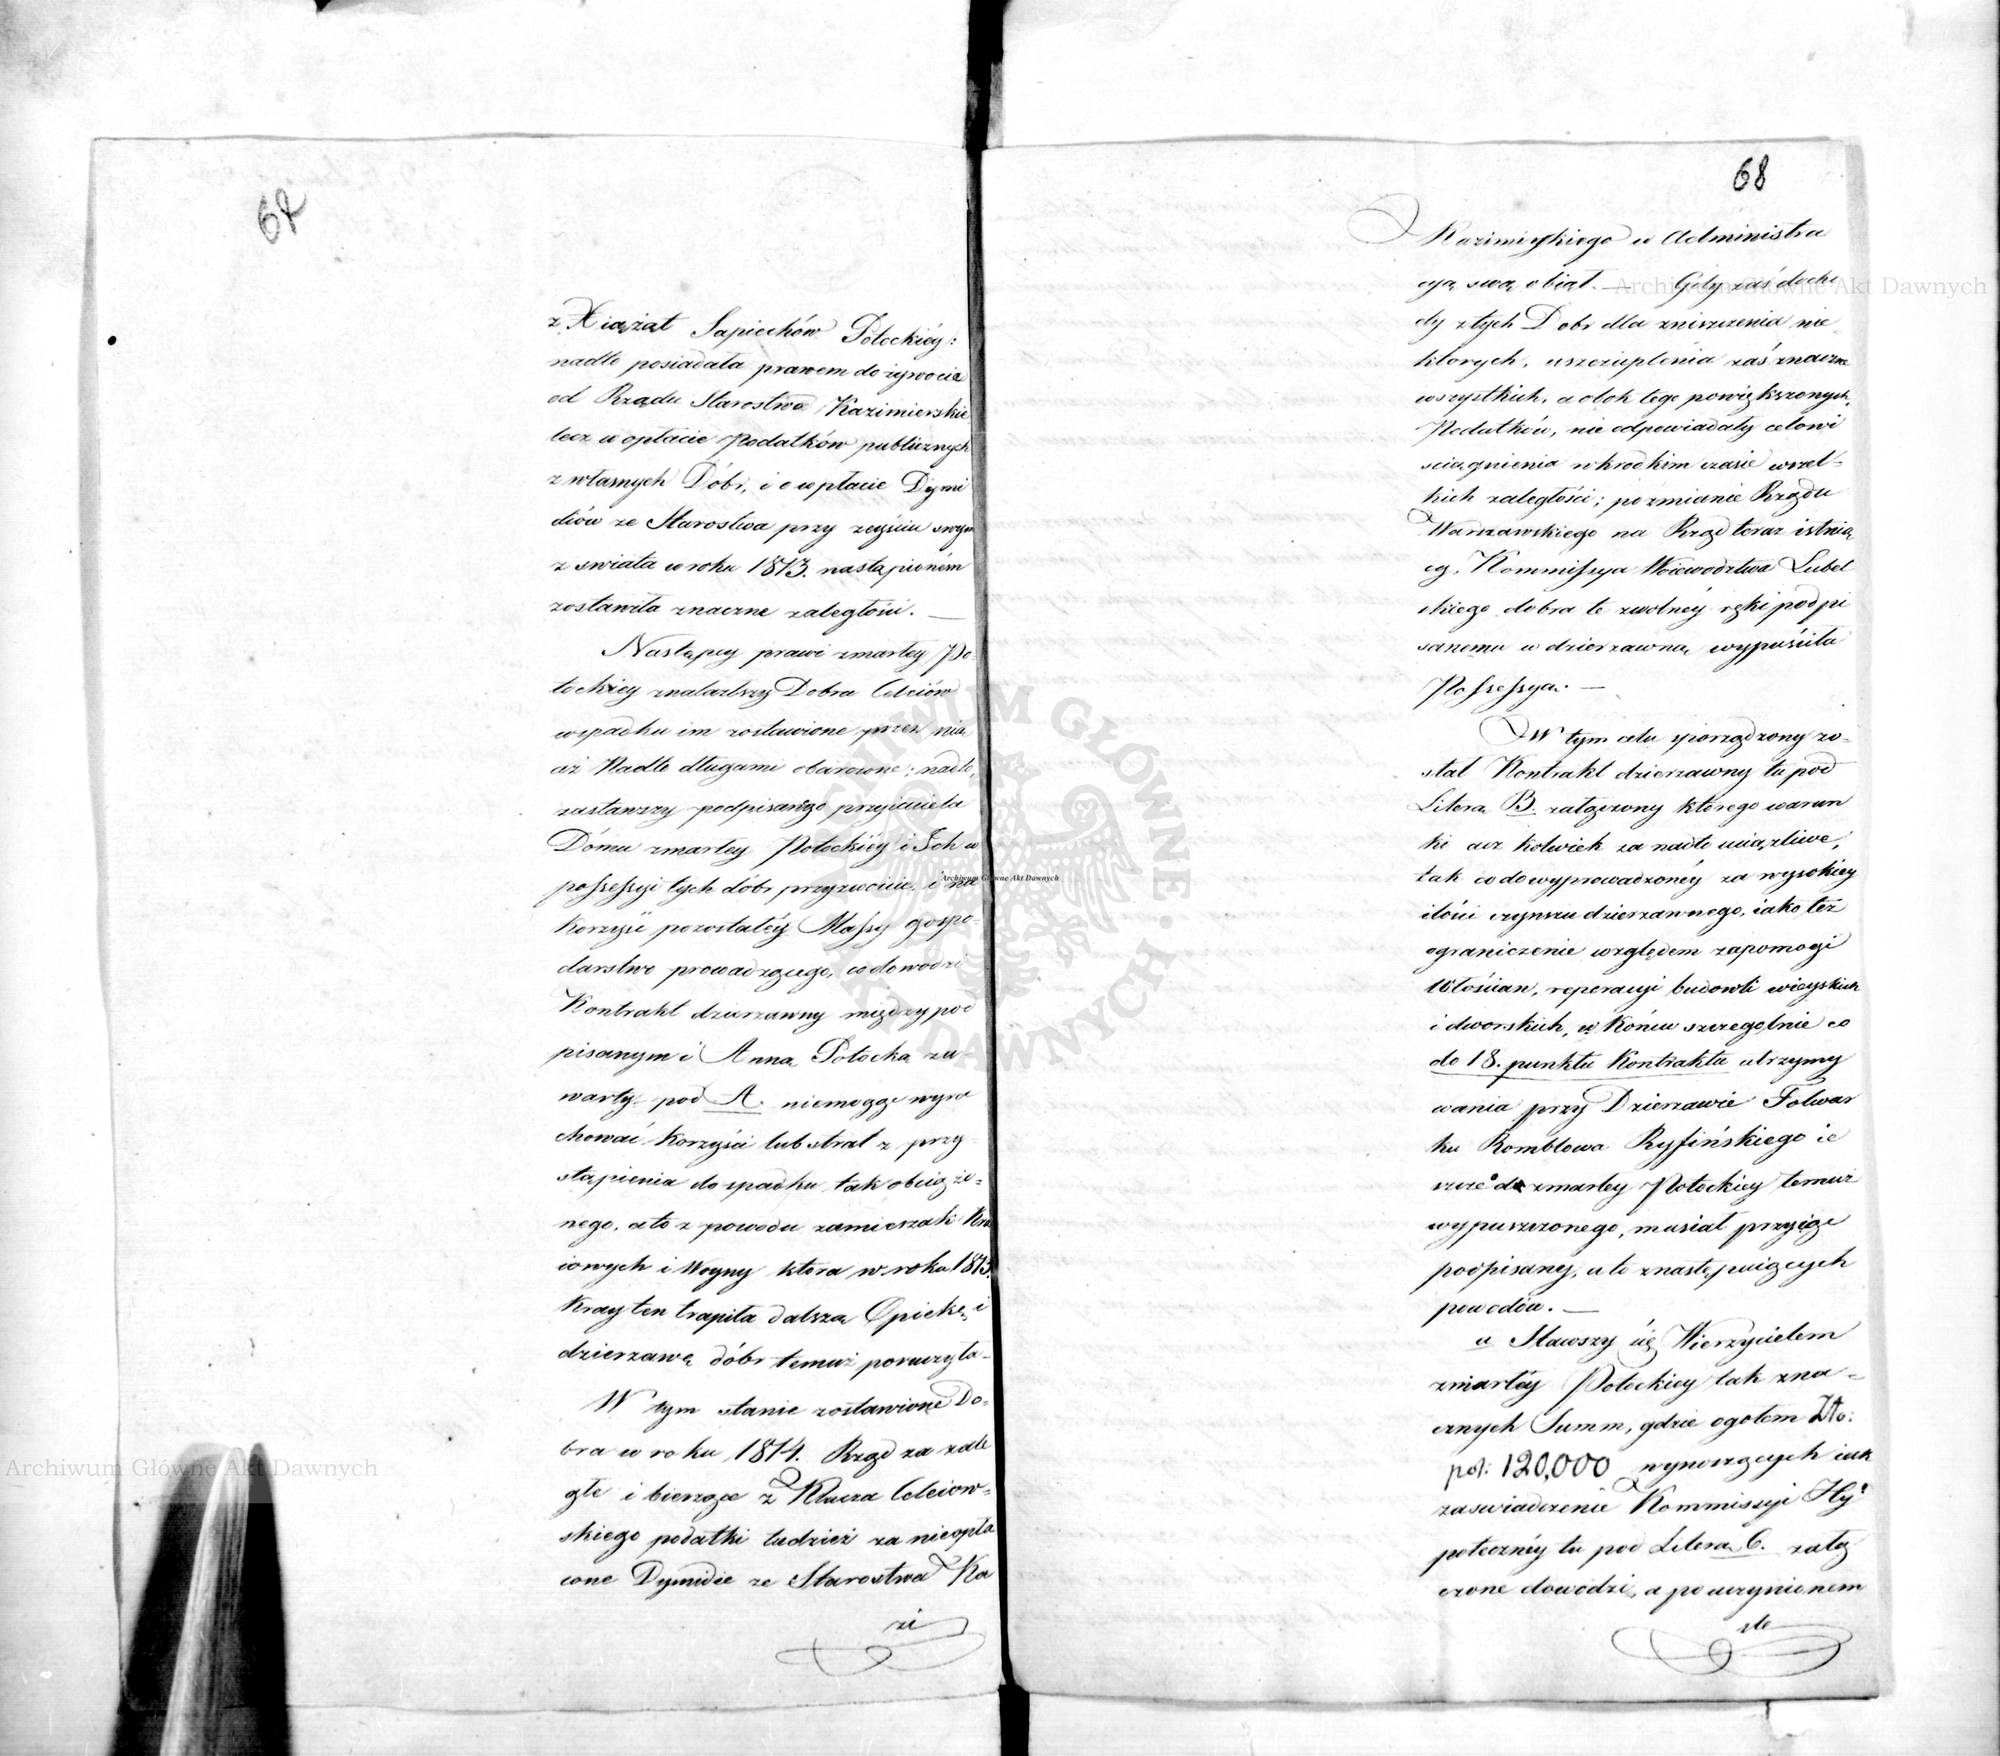 67
z Xiążąt Sapiehów Potockiéy:
nadto posiadała prawem dożywocia
od Rządu Starostwo Kazimierskie
lecz w opłacie Podatków publicznych
z własnych Dóbr, i o wpłacie Dymi
diów ze Starostwa przy zeyściu swym
z swiata w roku 1813. nastąpioném
zostawiła znaczne zaległości. —
Następcy prawi zmarłey Po-
tockiey znalazłszy Dobra Celeiów
w spadku im zostawione przez nią
aż Nadto długami obarczone; nadto,
zastawszy podpisanego przyiaciela
Dómu zmarłey Potockiéy i Ich w
possessyi tych dóbr przyzwoicie, i na
korzyść pozostałéy Massy gospo-
darstwo prowadzącego, co dowodzi
Kontrakt dzierzawny między pod
pisanym i Anną Potocką za-
warty pod A. niemogąc wyra
chować korzyści lub strat z przy-
stąpienia do spadku tak obciążo=
nego, a to z powodu zamieszek Kra
iowych i Woyny ktora w roku 1813.
Kray ten trapiła dalszą Opiekę i
dzierzawę dóbr temuż poruczyła-
W tym stanie zostawione Do=
bra w roku 1814. Rząd za zale
głe i bierzące z Klucza Celeiow=
skiego podatki tudzież za nieopła
cone Dymidie ze Starostwa Ka
zi
68
Kazimirskiego w Administra
cyą swą obiął. — Gdy zaś docho
dy z tych Dobr dla zniszczenia nie
ktorych, uszczuplenia zaś znaczne
wszystkich, a obok tego powiększonych
Podatków, nie odpowiadały celowi
sciągnienia w krodkim czasie wszel=
kich zaległości; po zmianie Rządu
Warszawskiego na Rząd teraz istnią
cy, Kommissya Woiewodztwa Lubel
skiego dobra te z wolnéy ręki podpi
sanemu w dzierzawną wypuściła
Possessyą. —
W tym celu sporządzony zo=
stał Kontrakt dzierzawny tu pod
Literą B. załączony ktorego warun
ki acz kolwiek za nadto uciążliwe,
tak co do wyprowadzonéy za wysokiey
ilości czynszu dzierzawnego, iako też
ograniczenie względem zapomogi
Włościan, reperacyi budowli wieyskich
i dworskich, w końcu szczegolnie co
do 18. punktu Kontraktu utrzymy
wania przy Dzierzawie Folwar
ku Rombłowa Ryfińskiego ie
szcze od zmarłey Potockiey temuż
wypuszczonego, musiał przyiąć
podpisany, a to z następuiących
powodów. —
a Stawszy się Wierzycielem
zmarłéy Potockiey tak zna=
cznych Summ, gdzie ogołem Zło:
pol: 120,000 wynoszących iak
zaswiadczenie Kommissyi Hy:
poteczney tu pod Literą C. załą
czone dowodzi, a po uczynionem
sto
Archiwum Główne Akt Dawnych
Archiwum Główne Akt Dawnych
Archiwum Główne Akt Dawnych
ARCHIWUM GŁÓWNE AKT DAWNYCH